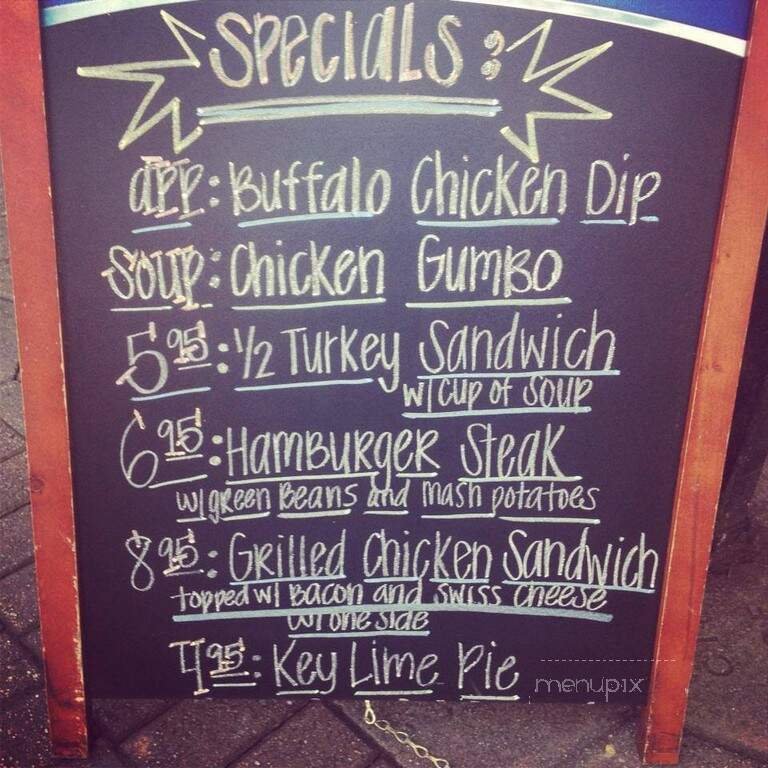 Specials:
app: Buffalo Chicken Dip
Soup: Chicken Gumbo
5.95: 1/2 Turkey Sandwich
w/ cup of soup
6.95: Hamburger Steak
w/ green Beans and mash potatoes
8.95: Grilled Chicken Sandwich
topped w/ Bacon and swiss cheese
w/ one side
4.95: Key Lime Pie
menupix